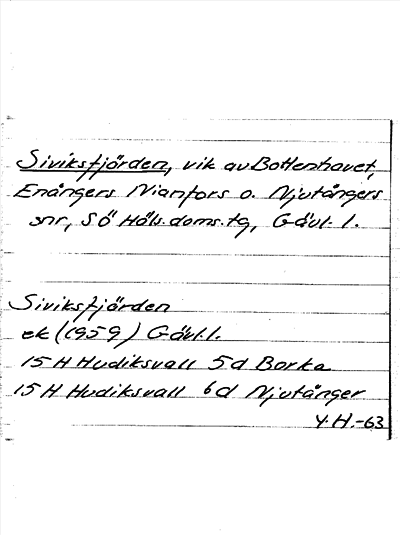 Siviksfjärden, vik av Bottenhavet,
Enångers Nianfors o. Njutångers
snr, Sö Häls. doms. tg, Gävl. l.
Siviksfjärden
ek (1959) Gävl. l.
15 H Hudiksvall 5d Borka
15 H Hudiksvall 6d Njutånger
Y.H.-63